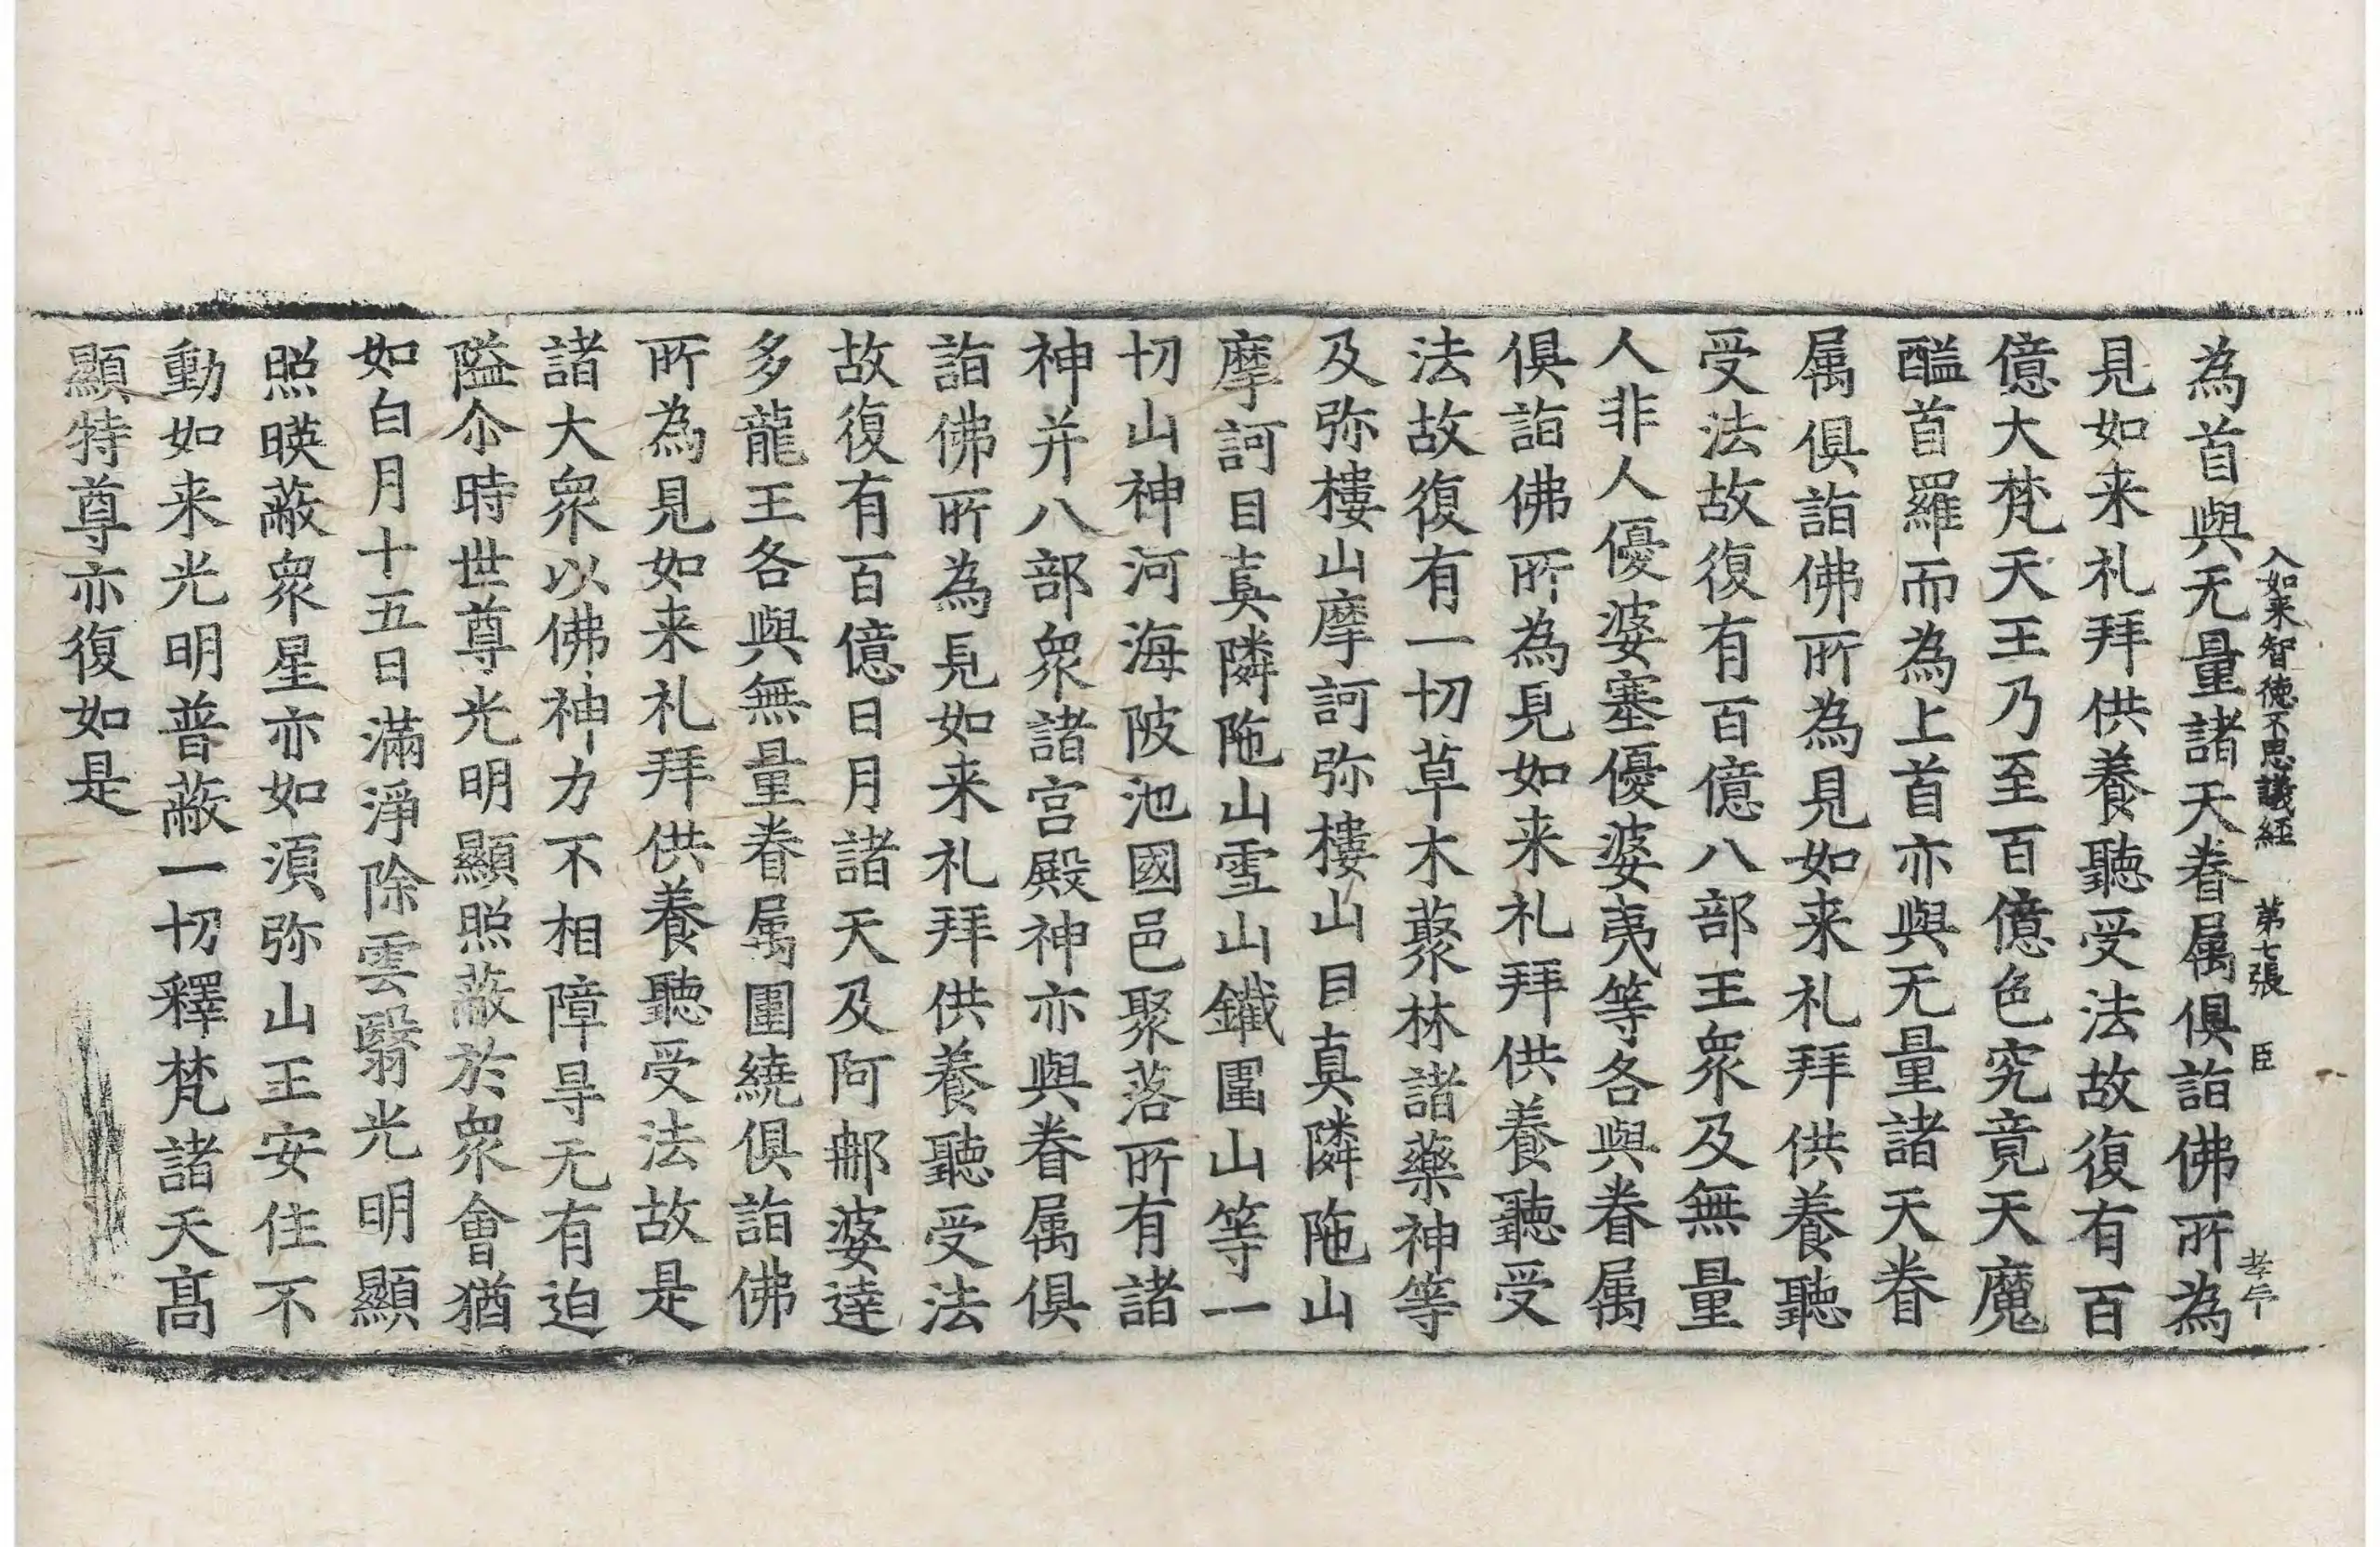 入如来智徳不思議経 第七張 臣
為首與无量諸天眷属俱詣佛所為
見如来礼拜供養聽受法故復有百
億大梵天王乃至百億色究竟天魔
醯首羅而為上首亦與无量諸天眷
属俱詣佛所為見如来礼拜供養聽
受法故復有百億八部王衆及無量
人非人優婆塞優婆夷等各與眷属
俱詣佛所為見如来礼拜供養聽受
法故復有一切草木藂林諸藥神等
及弥樓山摩訶弥樓山目真隣陁山
摩訶目真隣陁山雪山鐵圍山等一
切山神河海陂池國邑聚落所有諸
神并八部衆諸宫殿神亦與眷属俱
詣佛所為見如来礼拜供養聽受法
故復有百億日月諸天及阿那婆達
多龍王各與無量眷属圍繞俱詣佛
所為見如来礼拜供養聽受法故是
諸大衆以佛神力不相障㝵无有迫
隘尒時世尊光明顯照蔽於衆會猶
如白月十五日滿淨除雲翳光明顯
照暎蔽衆星亦如湏弥山王安住不
動如来光明普蔽一切釋梵諸天髙
顯特尊亦復如是